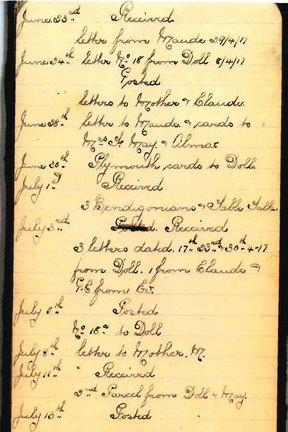 June 23rd Received
letter from Maude 29/4/17
June 24th letter No 18 from Doll 8/4/17
Posted
letters to Mother & Claude
June 28th letter to Maude & cards to
Mrs H May & Alma
June 30th Plymouth cards to Doll.
July 1st Received
3 Bendigonians & Table Talk.
July 3rd Received
3 letters dated 17th 23rd & 30th 4-17
from Doll. 1 from Claude &
P.C from
July 6th Posted
No 18a to Doll
July 8th letter to Mother. M.
July 11th Received
2nd Parcel from Doll & May.
July 13th Posted